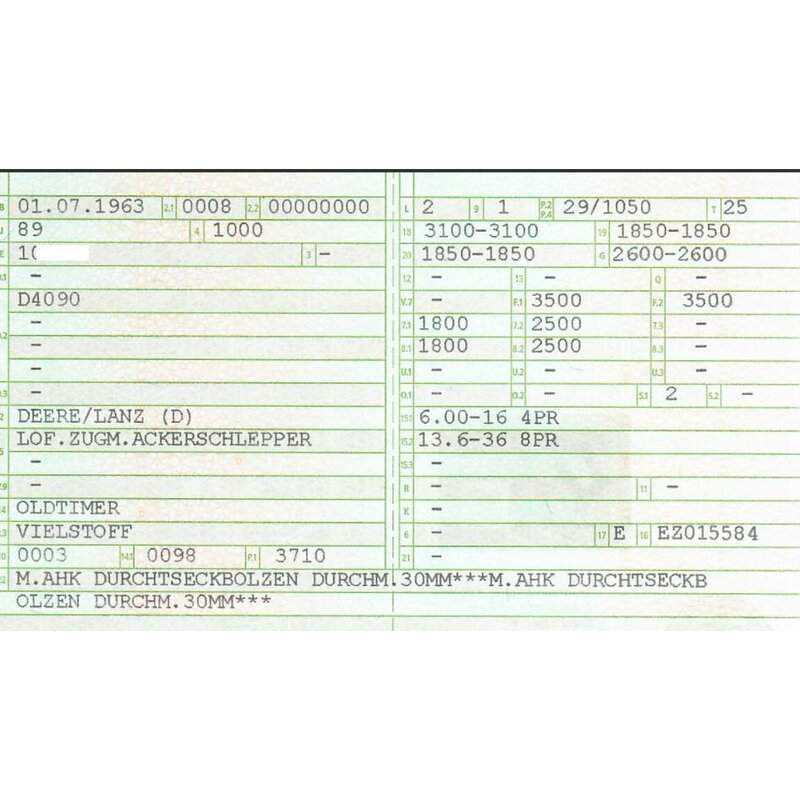 B 01.07.1963 2.1 0008 2.2 00000000
J 89 4 1000
E 1( 3 –
D.1 –
D4090
D.2 –
–
–
D.3 –
2 DEERE/LANZ (D)
5 LOF.ZUGM.ACKERSCHLEPPER
–
V.9 –
14 OLDTIMER
P.3 VIELSTOFF
10 0003 14.1 0098 P.1 3710
L 2 9 1 P.2 P.4 29/1050 T 25
18 3100-3100 19 1850-1850
20 1850-1850 G 2600-2600
12 – 13 – Q –
V.7 – F.1 3500 F.2 3500
7.1 1800 7.2 2500 7.3 –
8.1 1800 8.2 2500 8.3 –
U.1 – U.2 – U.3 –
O.1 – O.2 – S.1 2 S.2 –
15.1 6.00-16 4PR
15.2 13.6-36 8PR
15.3 –
R – 11 –
K –
6 – 17 E 16 EZ015584
21 –
22 M.AHK DURCHTSECKBOLZEN DURCHM.30MM***M.AHK DURCHTSECKB
OLZEN DURCHM.30MM***